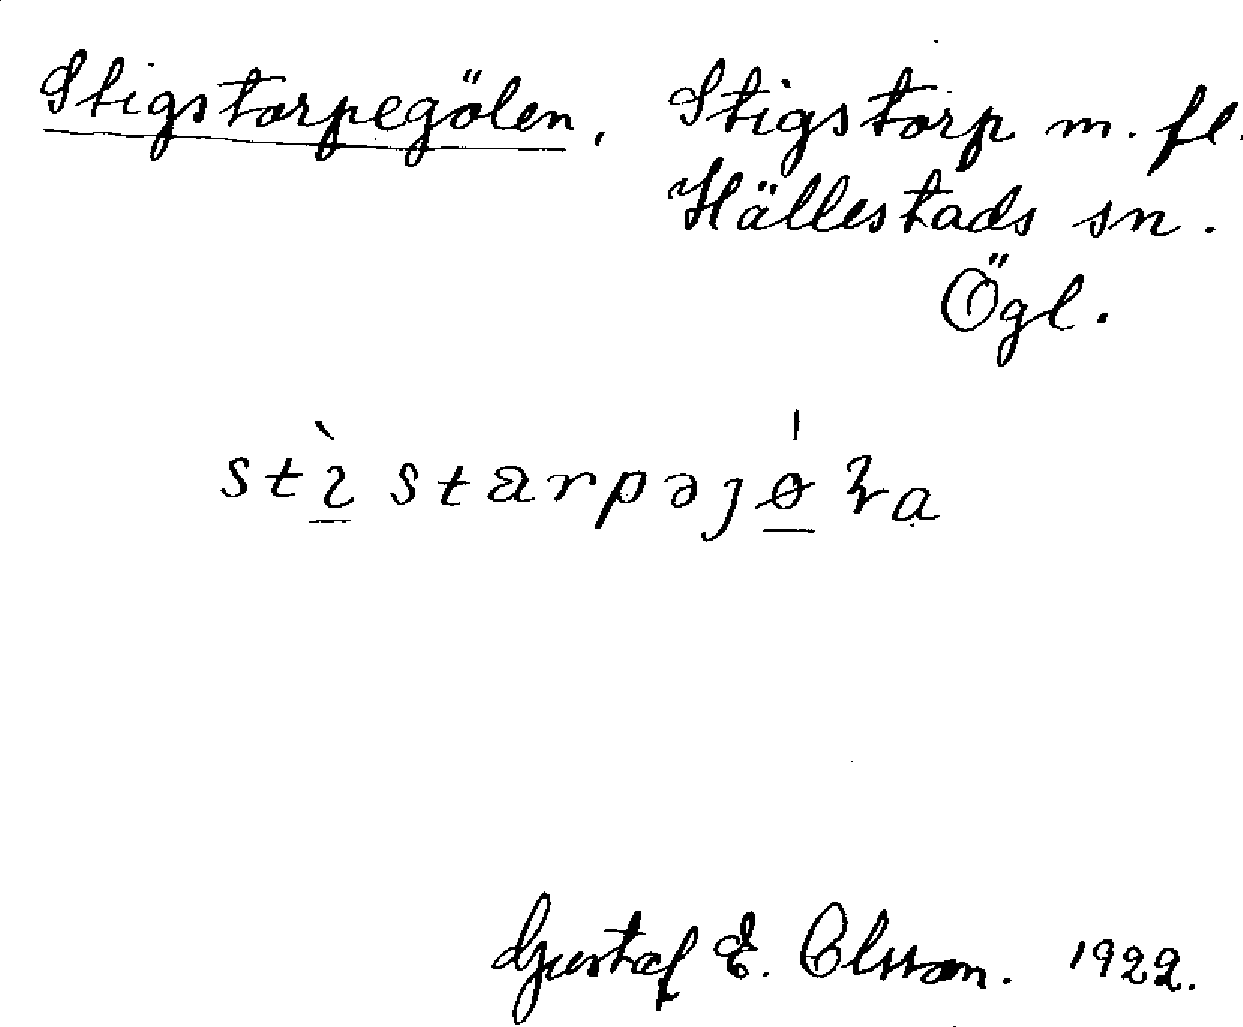 Stigstorpegölen, Stigstorp m. fl.
Hällestads sn.
Ögl.
stìstarpəȷɵ́ɽa
Gustaf E. Olsson. 1922.